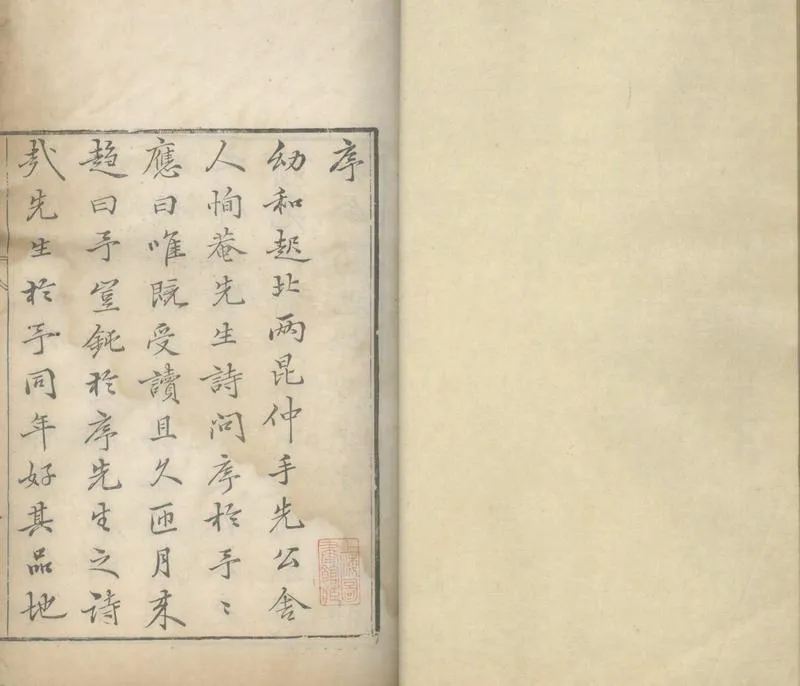 序
幼和起北兩昆仲手先公舍
人恂菴先生詩問序於予〻
應曰唯既受讀且久匝月來
趨曰予豈鈍於序先生之詩
哉先生於予同年好其品地